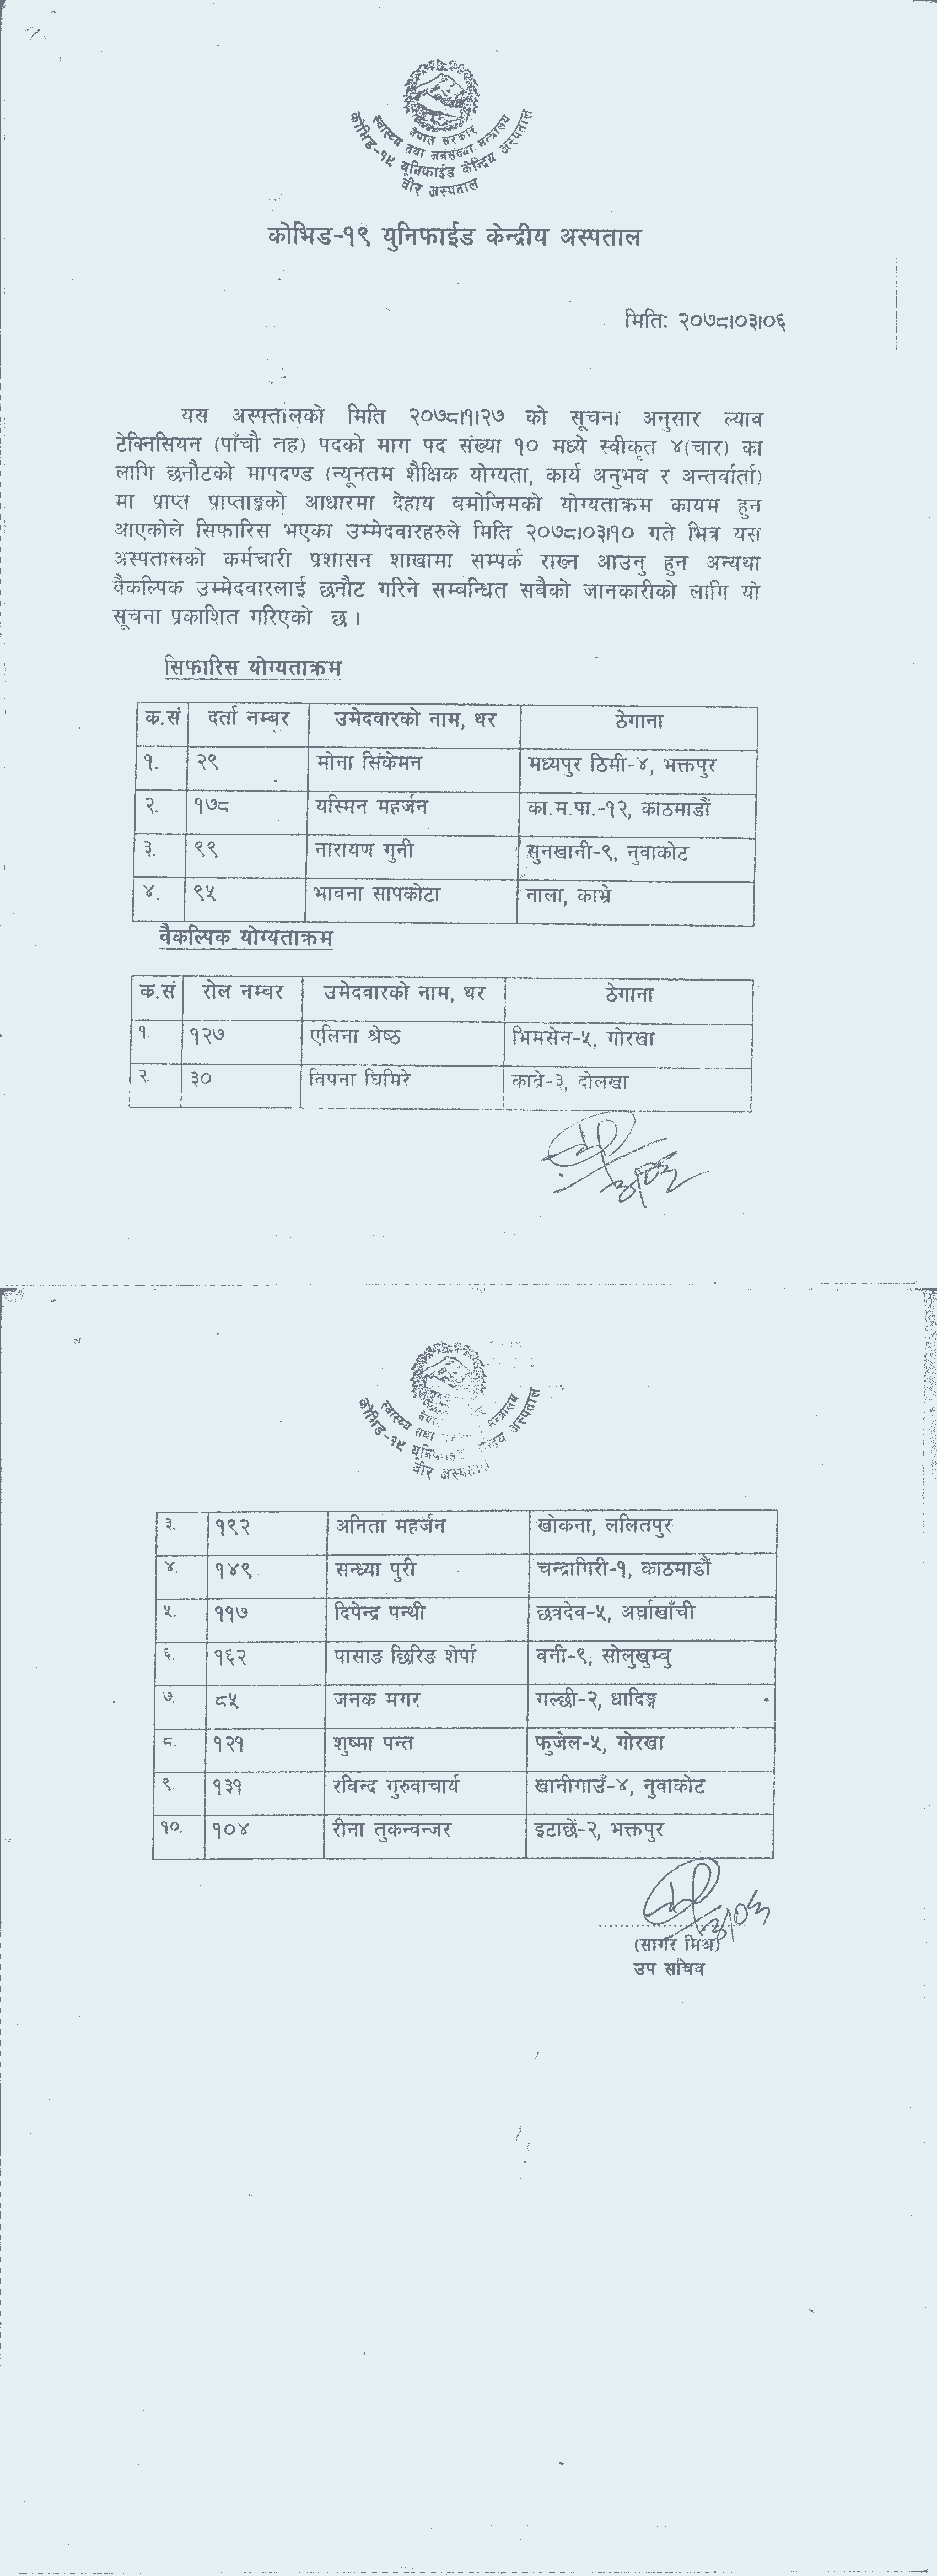 नेपाल सरकार
स्वास्थ्य तथा जनसंख्या मन्त्रालय
कोभिड-१९ यूनिफाईड केन्द्रिय अस्पताल
वीर अस्पताल
कोभिड-१९ युनिफाईड केन्द्रीय अस्पताल
मिति: २०७८।०३।०६
यस अस्पतालको मिति २०७८।१।२७ को सूचना अनुसार ल्याव
टेक्निसियन (पाँचौ तह) पदको माग पद संख्या १० मध्ये स्वीकृत ४(चार) का
लागि छनौटको मापदण्ड (न्यूनतम शैक्षिक योग्यता, कार्य अनुभव र अन्तर्वार्ता)
मा प्राप्त प्राप्ताङ्कको आधारमा देहाय बमोजिमको योग्यताक्रम कायम हुन
आएकोले सिफारिस भएका उम्मेदवारहरुले मिति २०७८।०३।१० गते भित्र यस
अस्पतालको कर्मचारी प्रशासन शाखामा सम्पर्क राख्न आउनु हुन अन्यथा
वैकल्पिक उम्मेदवारलाई छनौट गरिने सम्बन्धित सवैको जानकारीको लागि यो
सूचना प्रकाशित गरिएको छ ।
सिफारिस योग्यताक्रम
क.सं दर्ता नम्बर उमेदवारको नाम, थर ठेगाना
१. २९ मोना सिंकेमन मध्यपुर ठिमी-४, भक्तपुर
२. १७८ यस्मिन महर्जन का.म.पा.-१२, काठमाडौं
३. ९९ नारायण गुनी सुनखानी-९, नुवाकोट
४. ९५ भावना सापकोटा नाला, काभ्रे
वैकल्पिक योग्यताक्रम
क.सं रोल नम्बर उमेदवारको नाम, थर ठेगाना
१. १२७ एलिना श्रेष्ठ भिमसेन-५, गोरखा
२. ३० विपना घिमिरे काब्रे-३, दोलखा
३/०६
नेपाल
स्वास्थ्य तथा मन्त्रालय
कोभिड-१९ अस्पताल
वीर अस्पताल
३. १९२ अनिता महर्जन खोकना, ललितपुर
४. १४९ सन्ध्या पुरी चन्द्रागिरी-१, काठमाडौं
५. ११७ दिपेन्द्र पन्थी छत्रदेव-५, अर्घाखाँची
६. १६२ पासाङ छिरिङ शेर्पा वनी-९, सोलुखुम्बु
७. ८५ जनक मगर गल्छी-२, धादिङ्ग
८. १२१ शुष्मा पन्त फुजेल-५, गोरखा
९. १३१ रविन्द्र गुरुवाचार्य खानीगाउँ-४, नुवाकोट
१०. १०४ रीना तुकन्वन्जर इटाछें-२, भक्तपुर
३/०६
(सागर मिश्र)
उप सचिव